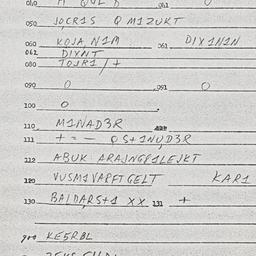 040
041
050 JOCR1S Q M1ZUKT
060 KOJA, N1M 061 DIX1N1N
062 DIXNT
080 TOJR1 / +
090 O 091 O
100 O
110 M1NAD3R
111 + = - QS+1NUD3R
112 ABUK ARAJNGP1LEJKT
120 VUSM1VARFTGELT KAR1
130 BAIDARS+1 XX 131 +
900 KE5RBL